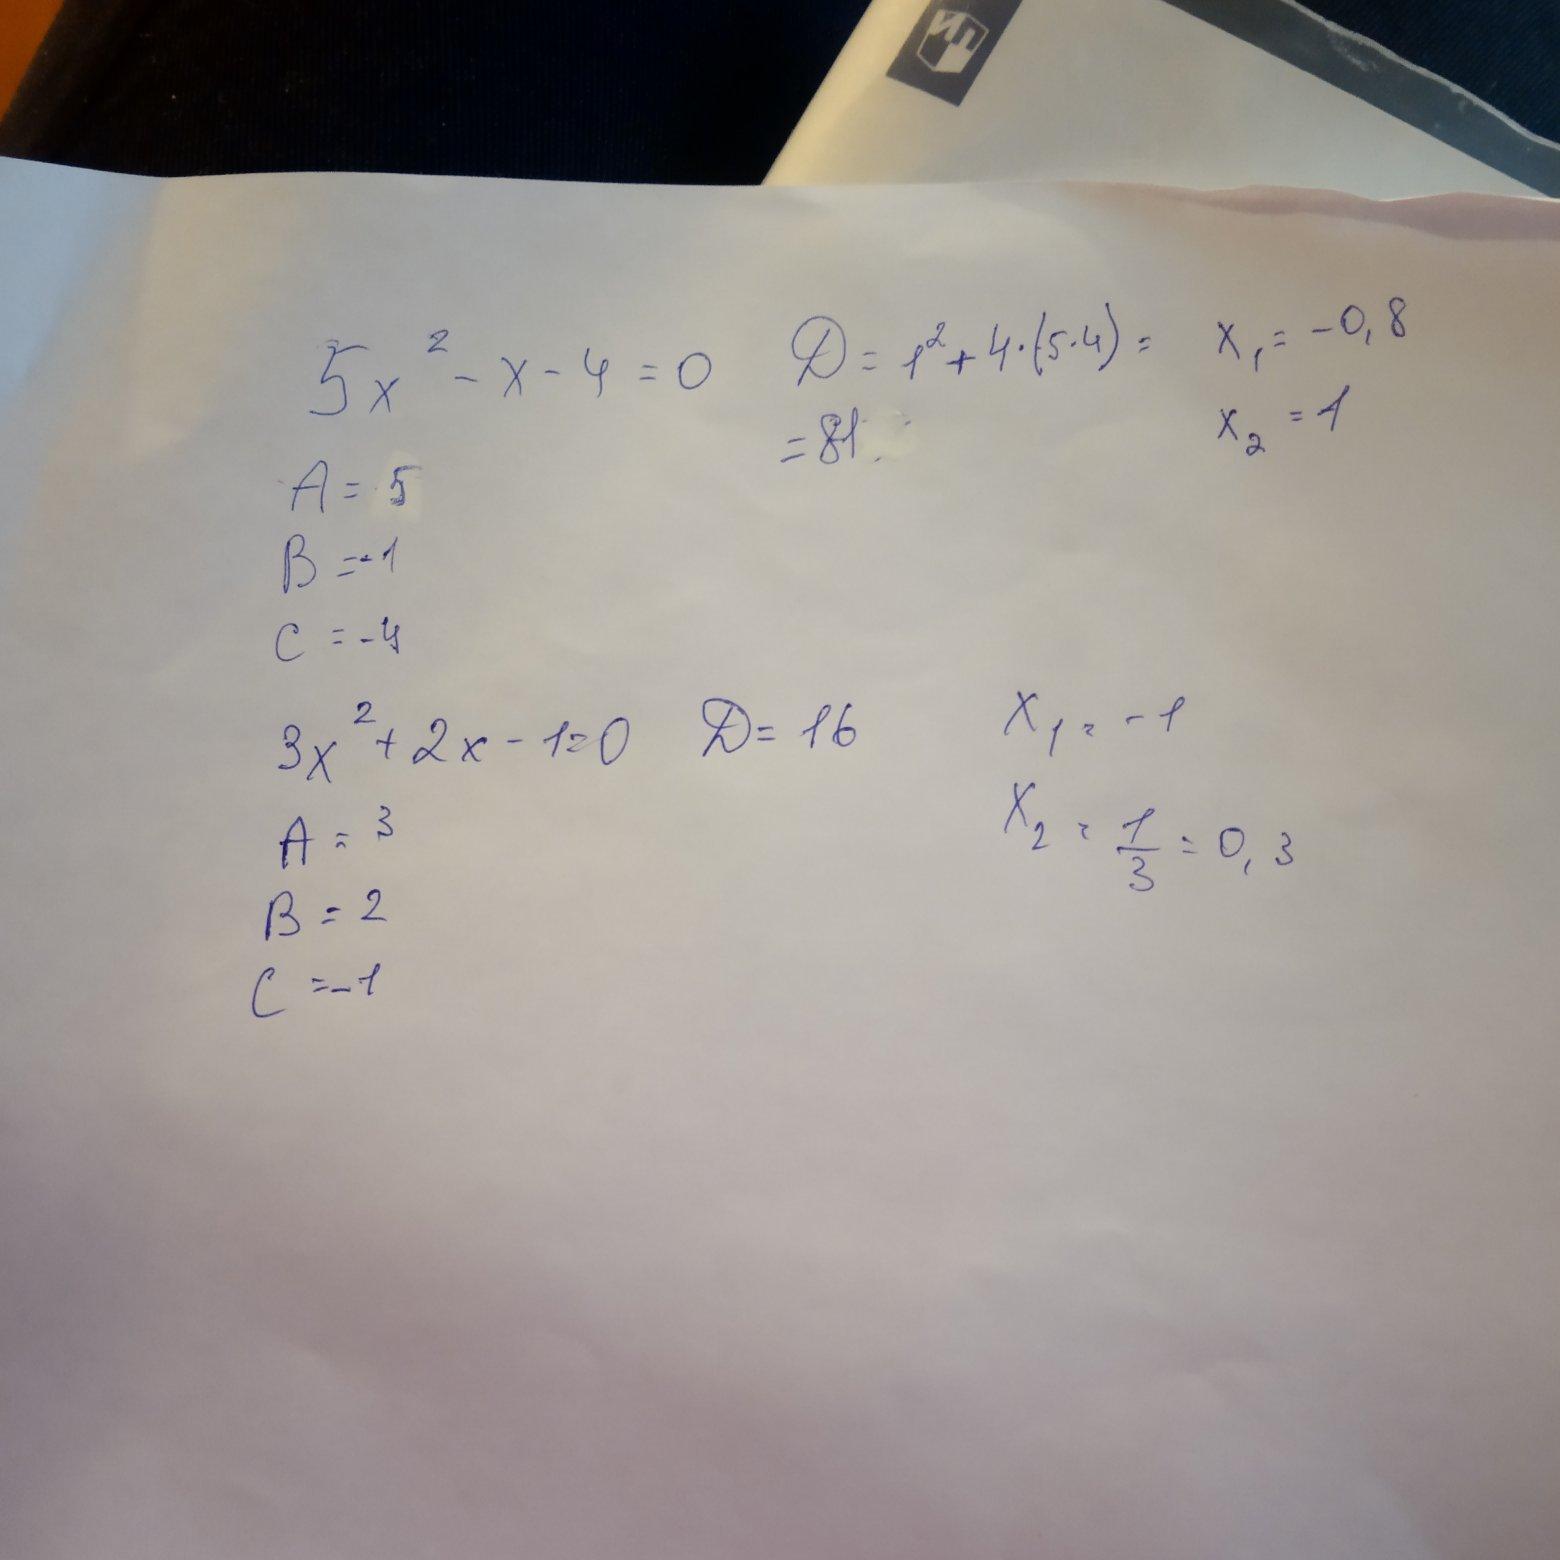 5x² - x - 4 = 0
D = 1² + 4·(5·4) =
= 81
x₁ = -0,8
x₂ = 1
A = 5
B = -1
C = -4
3x² + 2x - 1 = 0
D = 16
x₁ = -1
x₂ = 1/3 = 0,3
A = 3
B = 2
C = -1